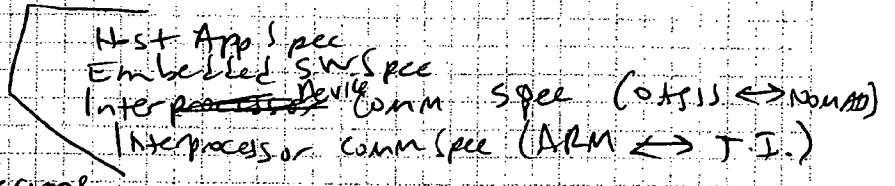 Host App Spec
Embedded SW Spec
Inter Device Comm Spec (OASIS ↔ NOMAD)
Interprocessor Comm Spec (ARM ↔ T.I.)